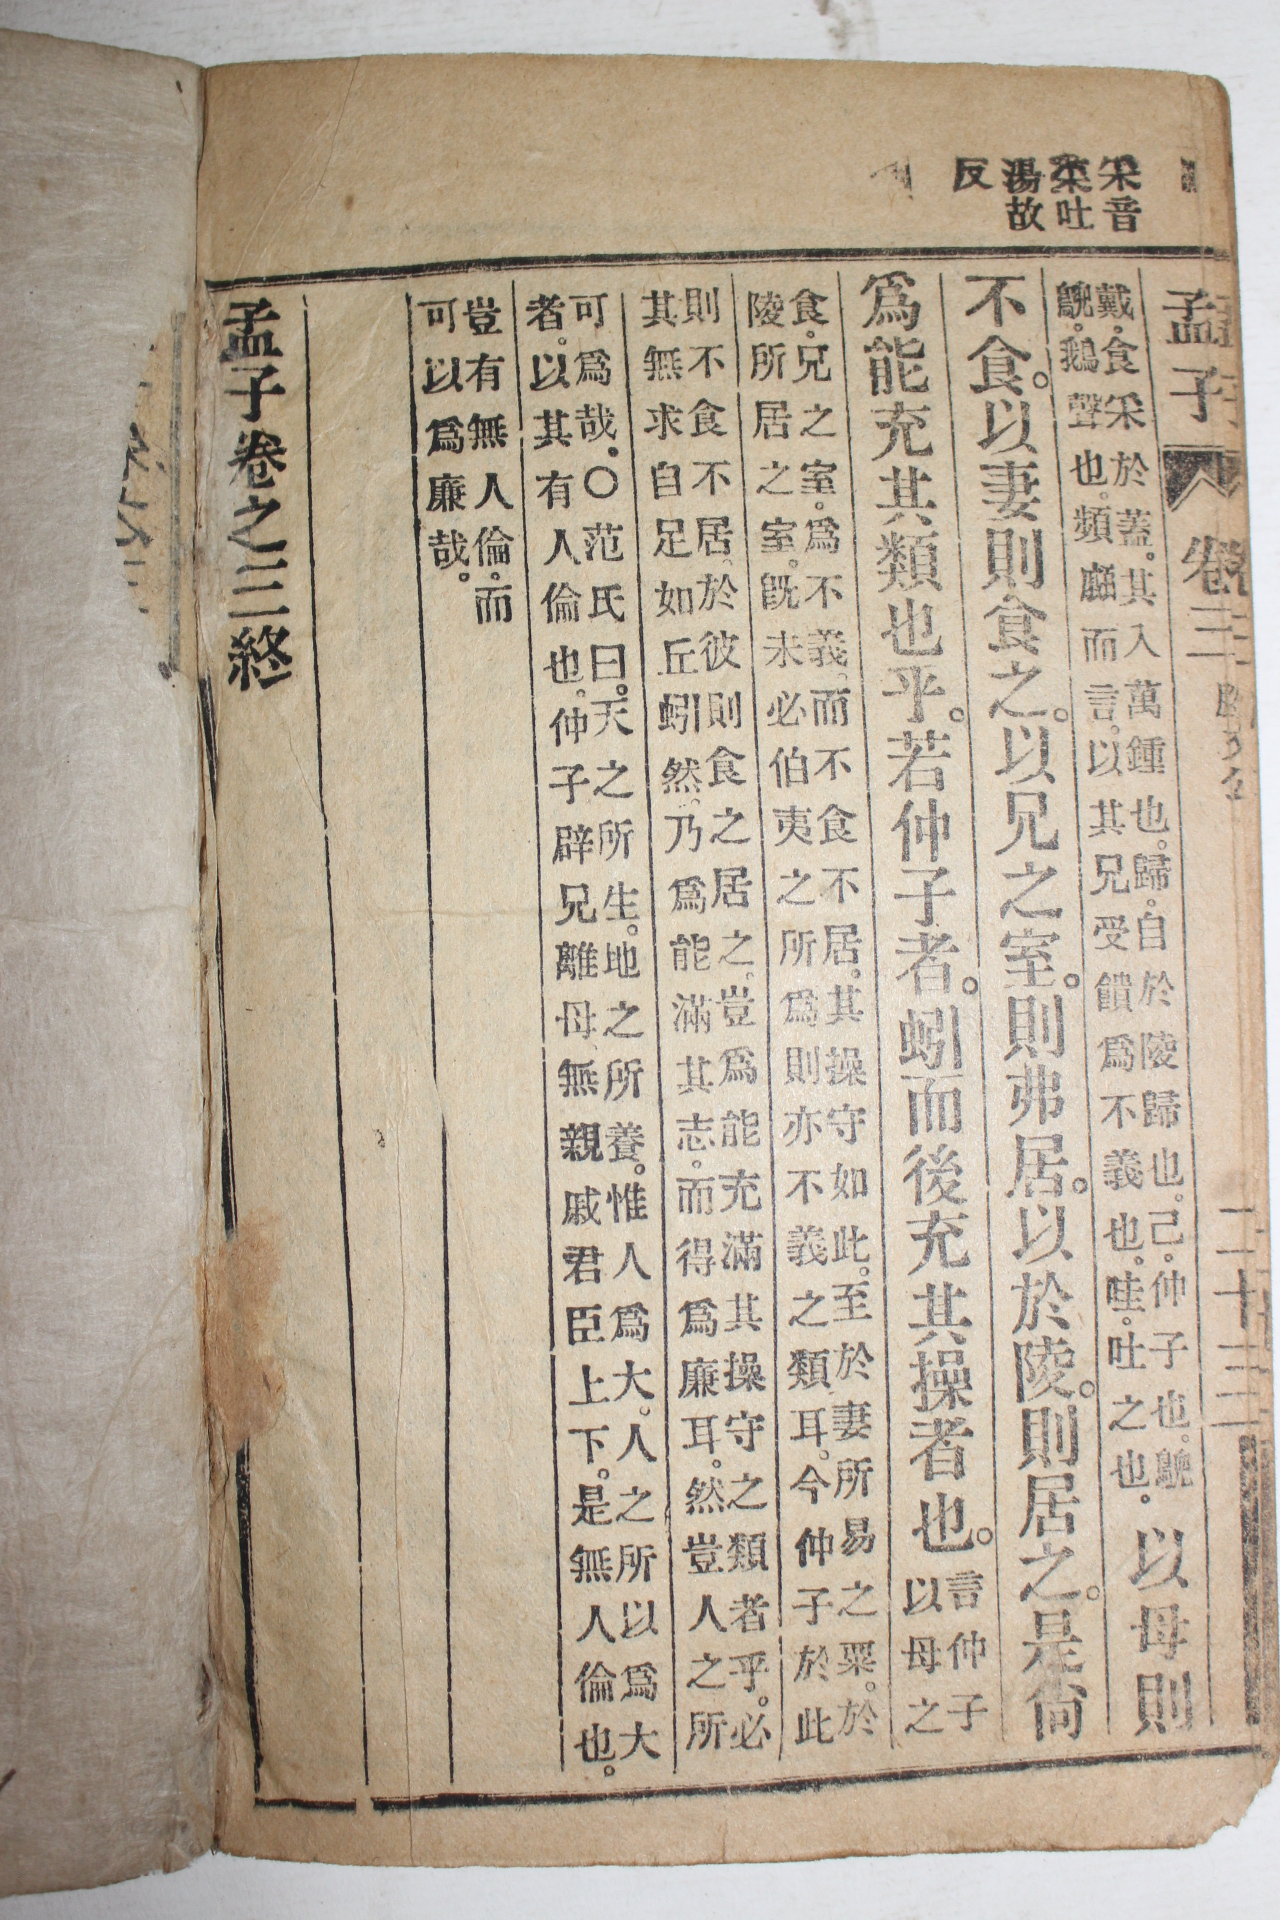 采音
柰吐
湯故
反
孟子 卷三 二十三
戴食采於蓋。其入萬鍾也。歸。自於陵歸也。己。仲子也。鶃
鶃。鵝聲也。頻顣而言。以其兄受饋爲不義也。哇。吐之也。
以母則
不食。以妻則食之。以兄之室。則弗居。以於陵。則居之。是尙
爲能充其類也乎。若仲子者。蚓而後充其操者也。
言仲子
以母之
食。兄之室。爲不義。而不食不居。其操守如此。至於妻所易之粟。於
陵所居之室。旣未必伯夷之所爲。則亦不義之類耳。今仲子於此
則不食不居。於彼則食之居之。豈爲能充滿其操守之類者乎。必
其無求自足。如丘蚓然。乃爲能滿其志。而得爲廉耳。然豈人之所
可爲哉。○范氏曰。天之所生。地之所養。惟人爲大。人之所以爲大
者。以其有人倫也。仲子辟兄離母。無親戚君臣上下。是無人倫也。
豈有無人倫。而
可以爲廉哉。
孟子卷之三終